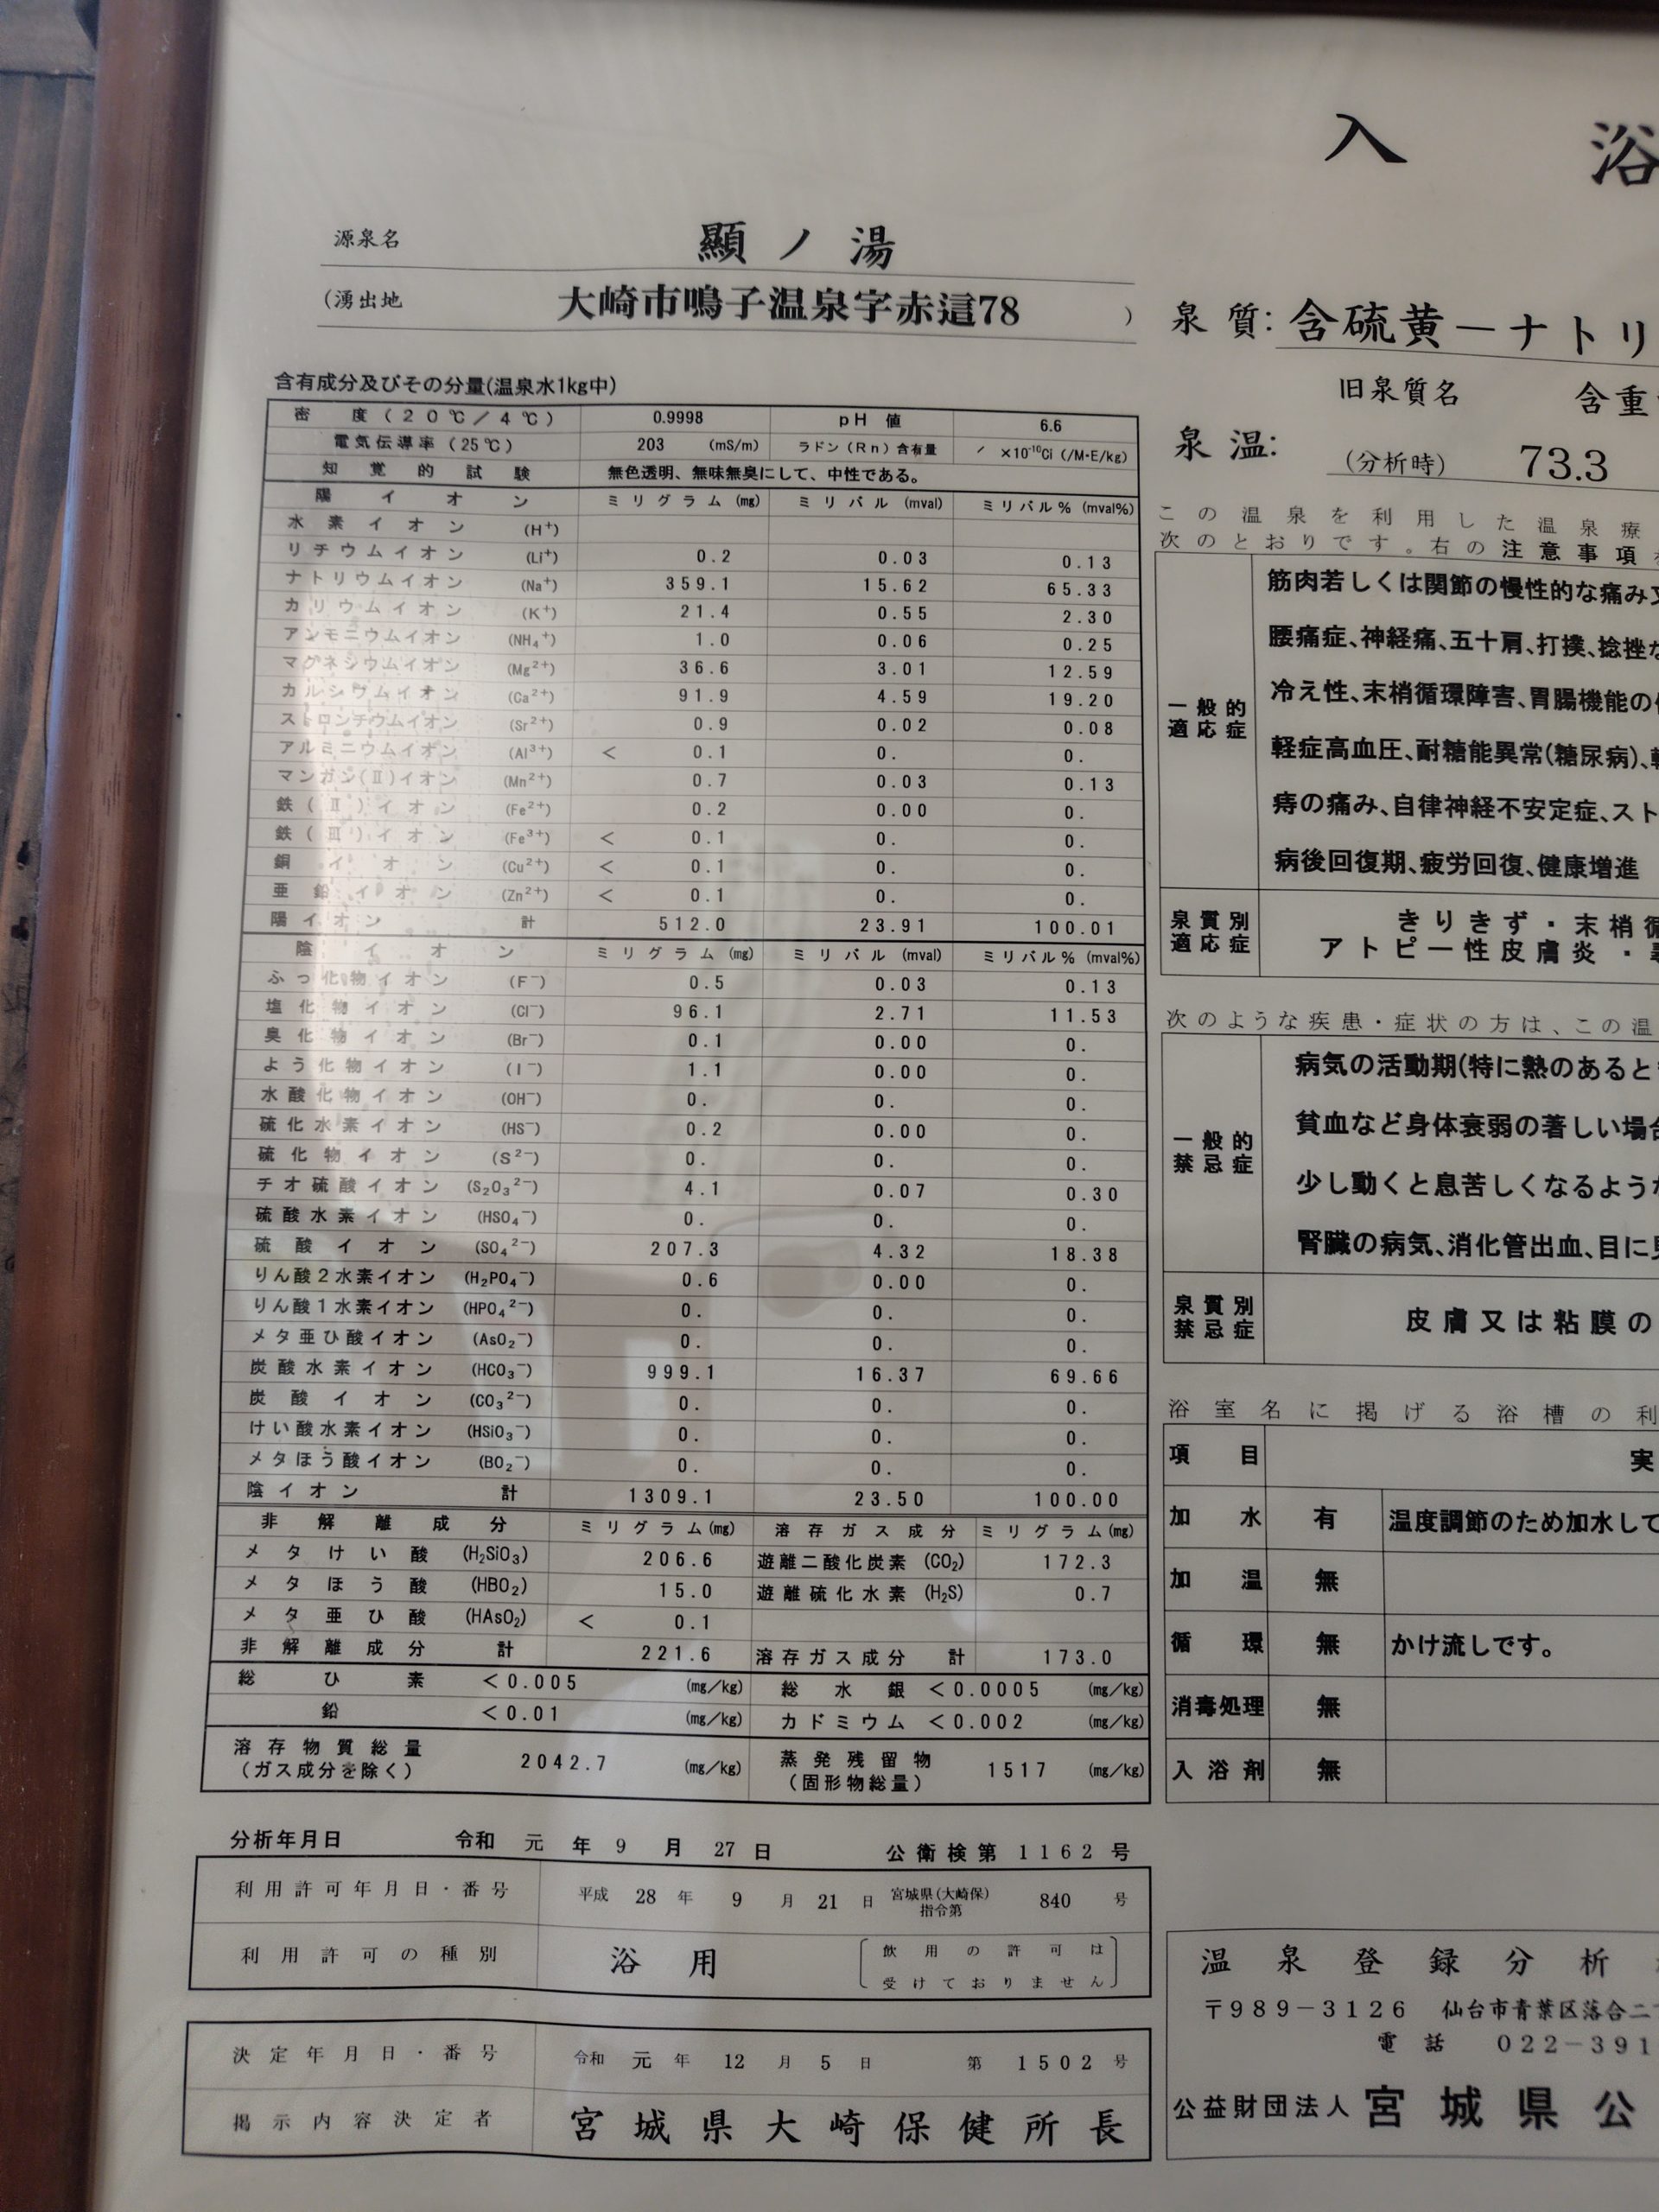 入 浴
源泉名 顯ノ湯
(湧出地 大崎市鳴子温泉字赤這78 )
泉質: 含硫黄ーナトリ
旧泉質名 含重
泉温: (分析時) 73.3
含有成分及びその分量(温泉水1kg中)
密度(20℃/4℃) 0.9998 pH値 6.6
電気伝導率(25℃) 203 (mS/m) ラドン(Rn)含有量 / ×10⁻¹⁰Ci(/M・E/kg)
知覚的試験 無色透明、無味無臭にして、中性である。
陽イオン ミリグラム(mg) ミリバル(mval) ミリバル%(mval%)
水素イオン (H⁺)
リチウムイオン (Li⁺) 0.2 0.03 0.13
ナトリウムイオン (Na⁺) 359.1 15.62 65.33
カリウムイオン (K⁺) 21.4 0.55 2.30
アンモニウムイオン (NH₄⁺) 1.0 0.06 0.25
マグネシウムイオン (Mg²⁺) 36.6 3.01 12.59
カルシウムイオン (Ca²⁺) 91.9 4.59 19.20
ストロンチウムイオン (Sr²⁺) 0.9 0.02 0.08
アルミニウムイオン (Al³⁺) < 0.1 0. 0.
マンガン(Ⅱ)イオン (Mn²⁺) 0.7 0.03 0.13
鉄(Ⅱ)イオン (Fe²⁺) 0.2 0.00 0.
鉄(Ⅲ)イオン (Fe³⁺) < 0.1 0. 0.
銅イオン (Cu²⁺) < 0.1 0. 0.
亜鉛イオン (Zn²⁺) < 0.1 0. 0.
陽イオン計 512.0 23.91 100.01
陰イオン ミリグラム(mg) ミリバル(mval) ミリバル%(mval%)
ふっ化物イオン (F⁻) 0.5 0.03 0.13
塩化物イオン (Cl⁻) 96.1 2.71 11.53
臭化物イオン (Br⁻) 0.1 0.00 0.
よう化物イオン (I⁻) 1.1 0.00 0.
水酸化物イオン (OH⁻) 0. 0. 0.
硫化水素イオン (HS⁻) 0.2 0.00 0.
硫化物イオン (S²⁻) 0. 0. 0.
チオ硫酸イオン (S₂O₃²⁻) 4.1 0.07 0.30
硫酸水素イオン (HSO₄⁻) 0. 0. 0.
硫酸イオン (SO₄²⁻) 207.3 4.32 18.38
りん酸2水素イオン (H₂PO₄⁻) 0.6 0.00 0.
りん酸1水素イオン (HPO₄²⁻) 0. 0. 0.
メタ亜ひ酸イオン (AsO₂⁻) 0. 0. 0.
炭酸水素イオン (HCO₃⁻) 999.1 16.37 69.66
炭酸イオン (CO₃²⁻) 0. 0. 0.
けい酸水素イオン (HSiO₃⁻) 0. 0. 0.
メタほう酸イオン (BO₂⁻) 0. 0. 0.
陰イオン計 1309.1 23.50 100.00
非解離成分 ミリグラム(mg) 溶存ガス成分 ミリグラム(mg)
メタけい酸 (H₂SiO₃) 206.6 遊離二酸化炭素 (CO₂) 172.3
メタほう酸 (HBO₂) 15.0 遊離硫化水素 (H₂S) 0.7
メタ亜ひ酸 (HAsO₂) < 0.1
非解離成分計 221.6 溶存ガス成分計 173.0
総ひ素 <0.005 (mg/kg) 総水銀 <0.0005 (mg/kg)
鉛 <0.01 (mg/kg) カドミウム <0.002 (mg/kg)
溶存物質総量 2042.7 (mg/kg) 蒸発残留物 1517 (mg/kg)
(ガス成分を除く) (固形物総量)
分析年月日 令和 元 年 9 月 27 日 公衛検第1162号
利用許可年月日・番号 平成 28 年 9 月 21 日 宮城県(大崎保) 指令第 840 号
利用許可の種別 浴用 飲用の許可は
受けておりません
決定年月日・番号 令和 元 年 12 月 5 日 第 1502 号
掲示内容決定者 宮城県大崎保健所長
この温泉を利用した温泉療
次のとおりです。右の注意事項
一般的
適応症
筋肉若しくは関節の慢性的な痛み
腰痛症、神経痛、五十肩、打撲、捻挫
冷え性、末梢循環障害、胃腸機能の
軽症高血圧、耐糖能異常(糖尿病)、
痔の痛み、自律神経不安定症、スト
病後回復期、疲労回復、健康増進
泉質別
適応症
きりきず・末梢循
アトピー性皮膚炎・
次のような疾患・症状の方は、この温
一般的
禁忌症
病気の活動期(特に熱のあると
貧血など身体衰弱の著しい場合
少し動くと息苦しくなるような
腎臓の病気、消化管出血、目に見
泉質別
禁忌症
皮膚又は粘膜の
浴室名に掲げる浴槽の利
項目 実
加水 有 温度調節のため加水して
加温 無
循環 無 かけ流しです。
消毒処理 無
入浴剤 無
温泉登録分析
〒989-3126 仙台市青葉区落合二
電話 022-391
公益財団法人 宮城県公